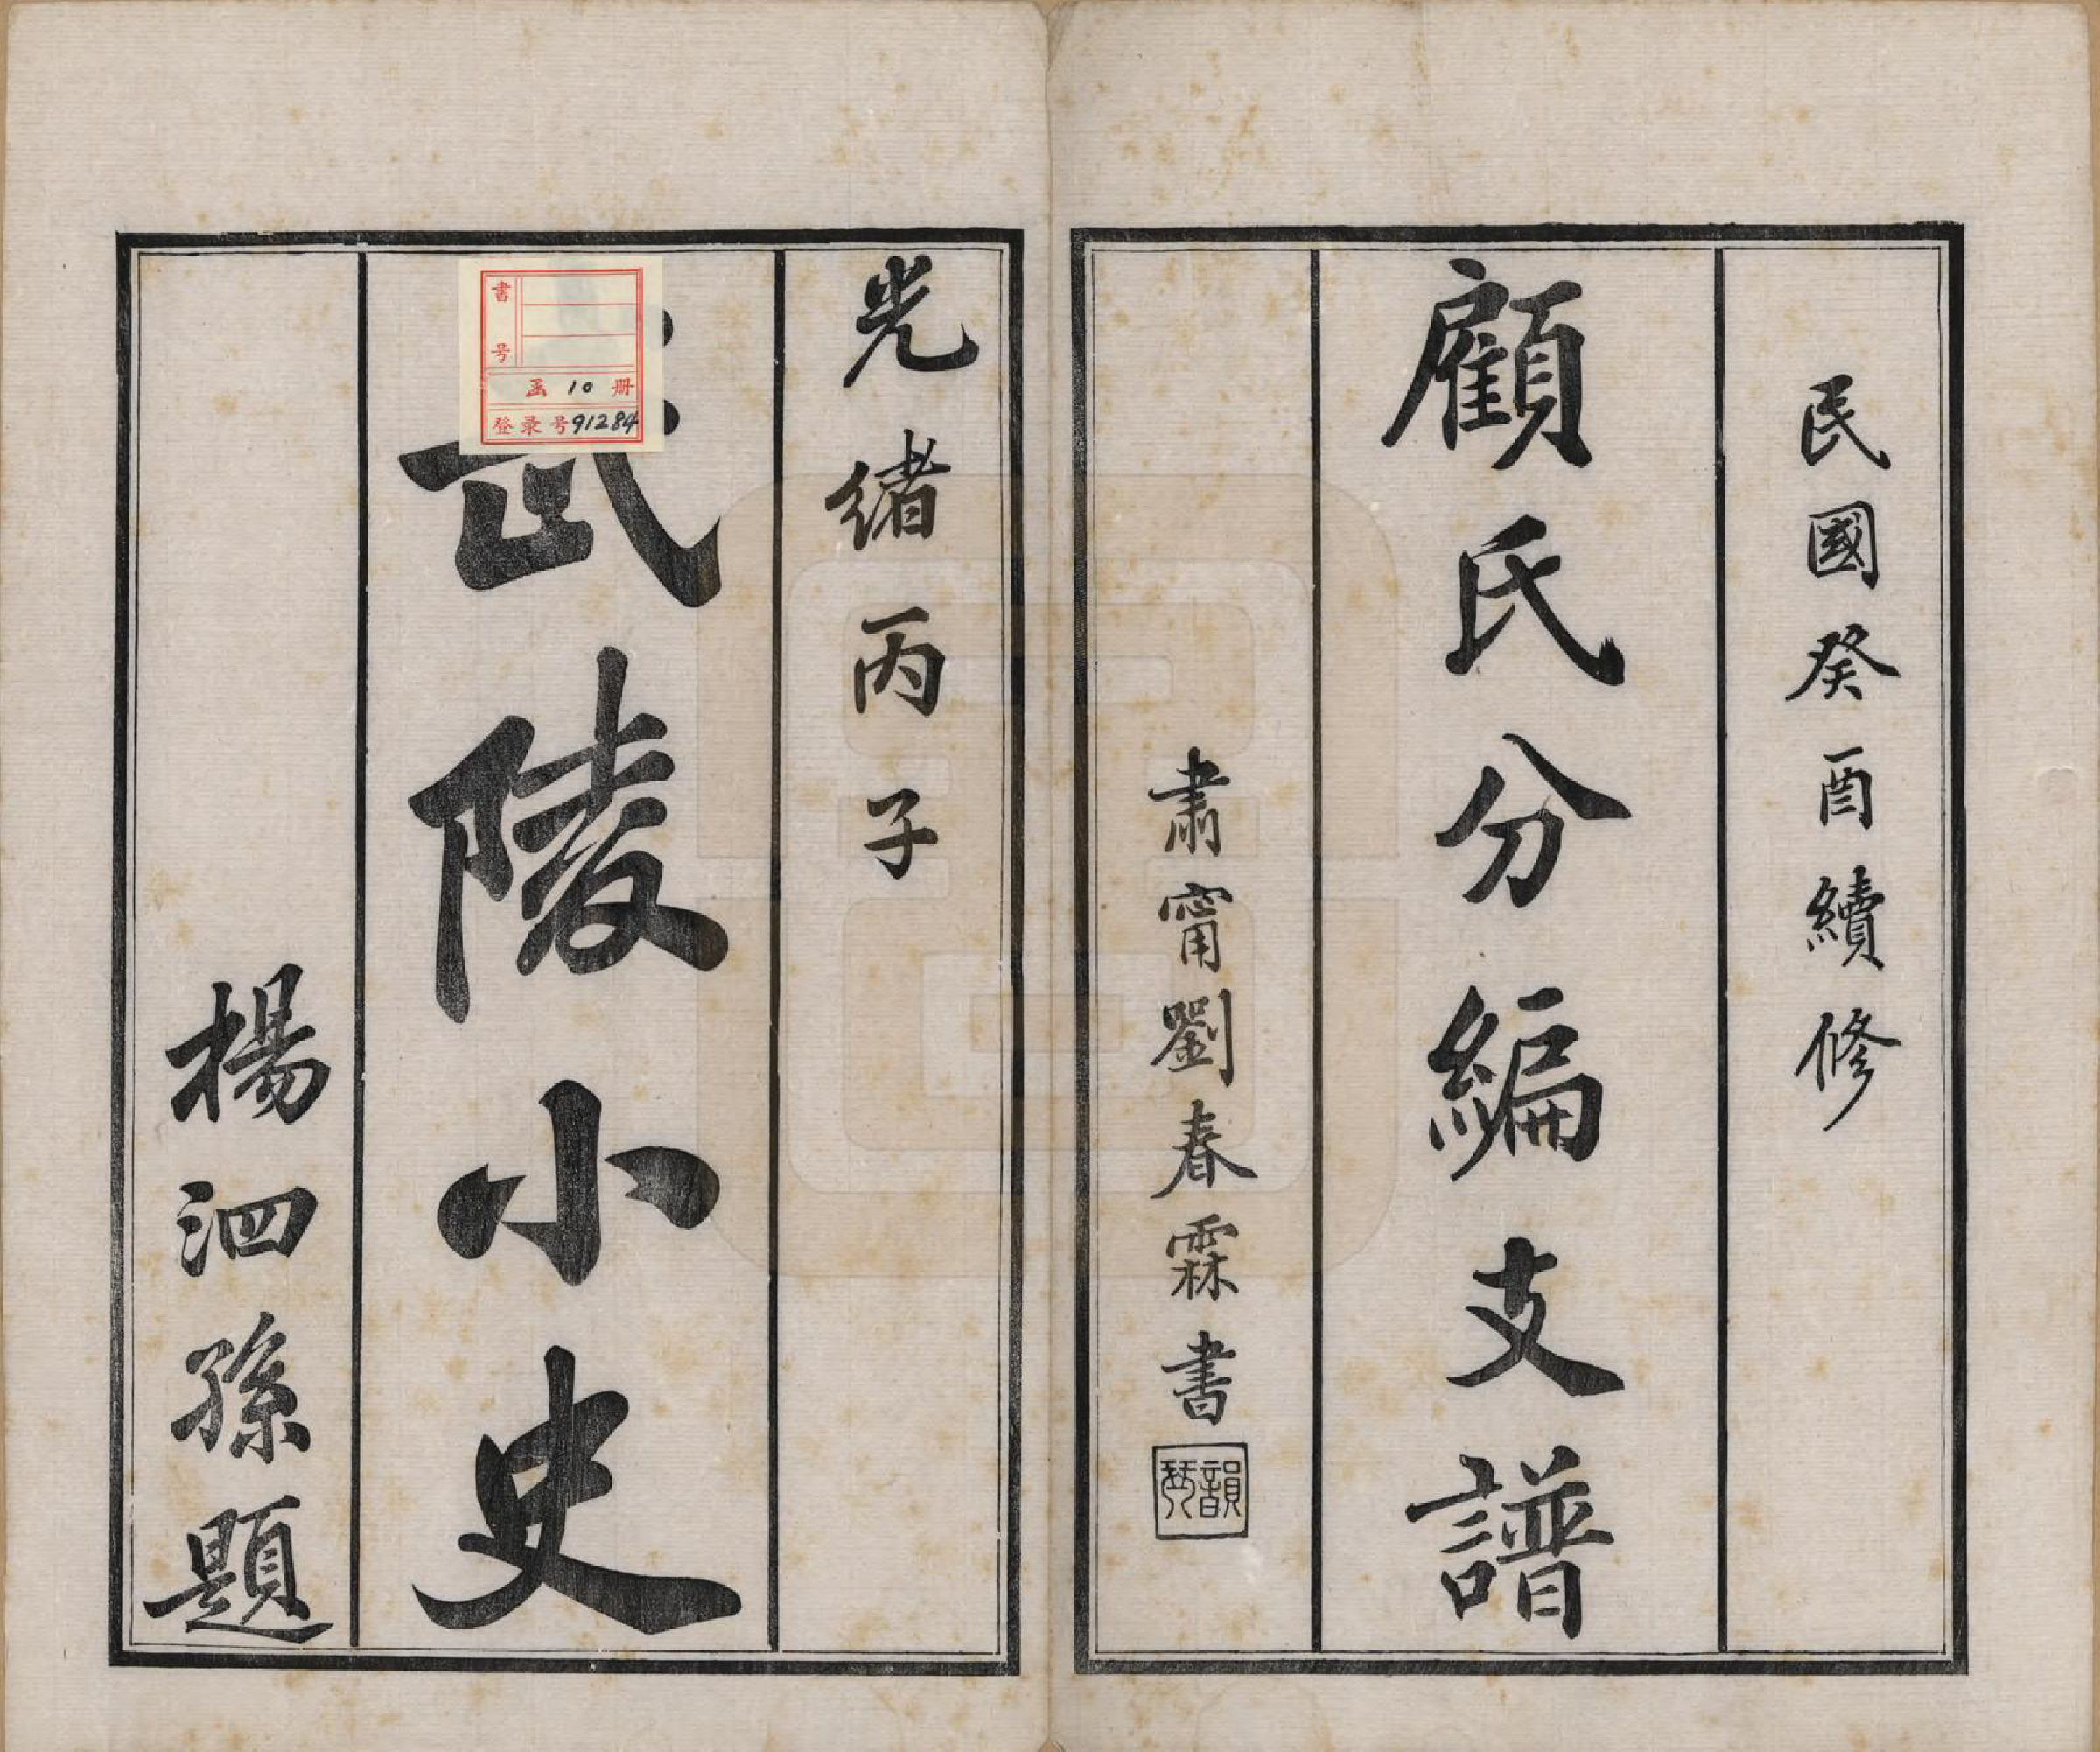 民國癸酉續修
顧氏分編支譜
肅甯劉春霖書
韻琴
光緒丙子
武陵小史
楊泗孫題
書号
函 10 册
登录号 91284